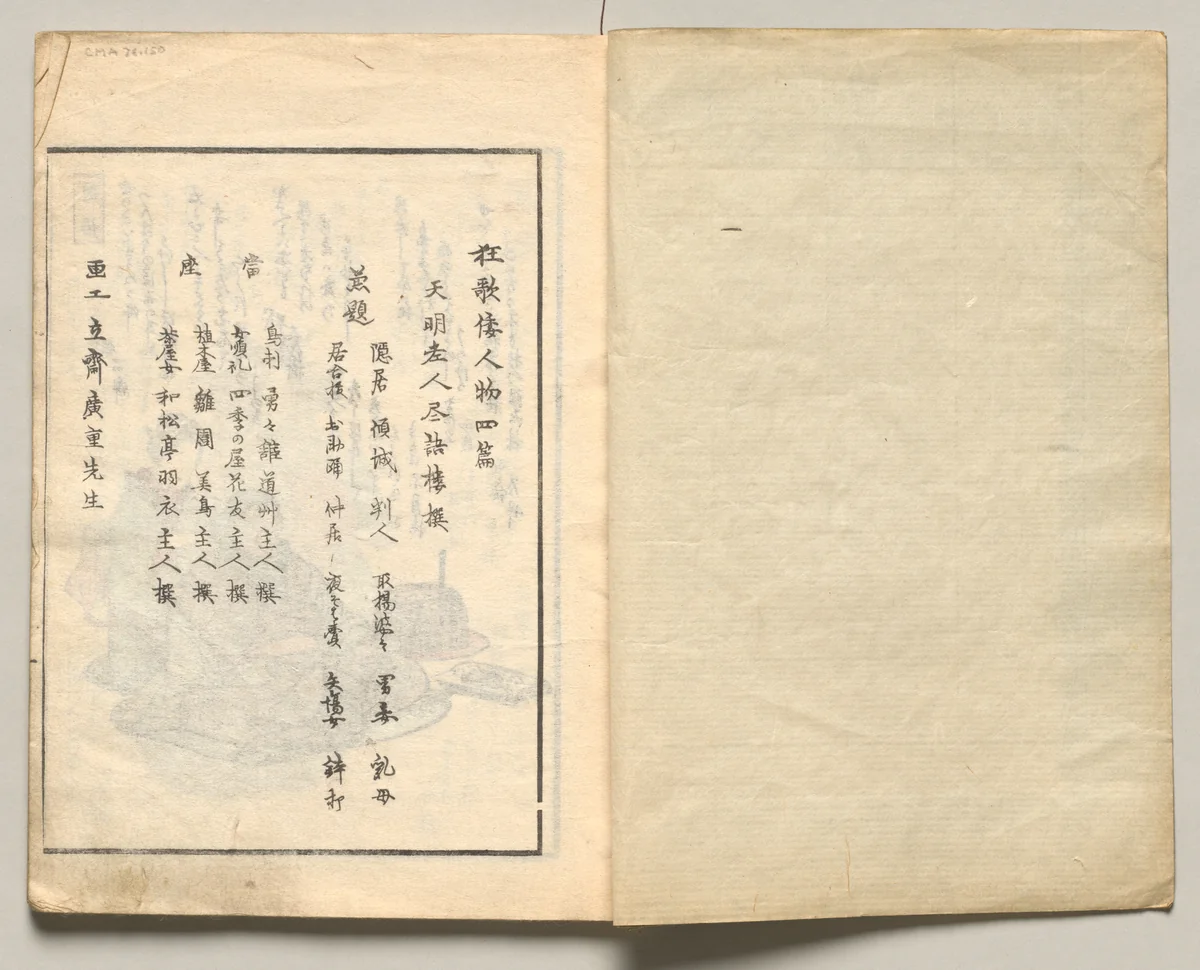 狂歌倭人物四篇
天明老人尽語楼撰
兼題
隠居 傾城 判人 取揚婆々 男妾 乳母
居合抜 お助踊 仲居 夜そば賣 矢場女 鉢打
當座
鳥刺 勇々舘道艸主人撰
女順礼 四季の屋花友主人撰
植木屋 雛園美鳥主人撰
茶屋女 和松亭羽衣主人撰
画工 立齋廣重先生
CMA 76.150